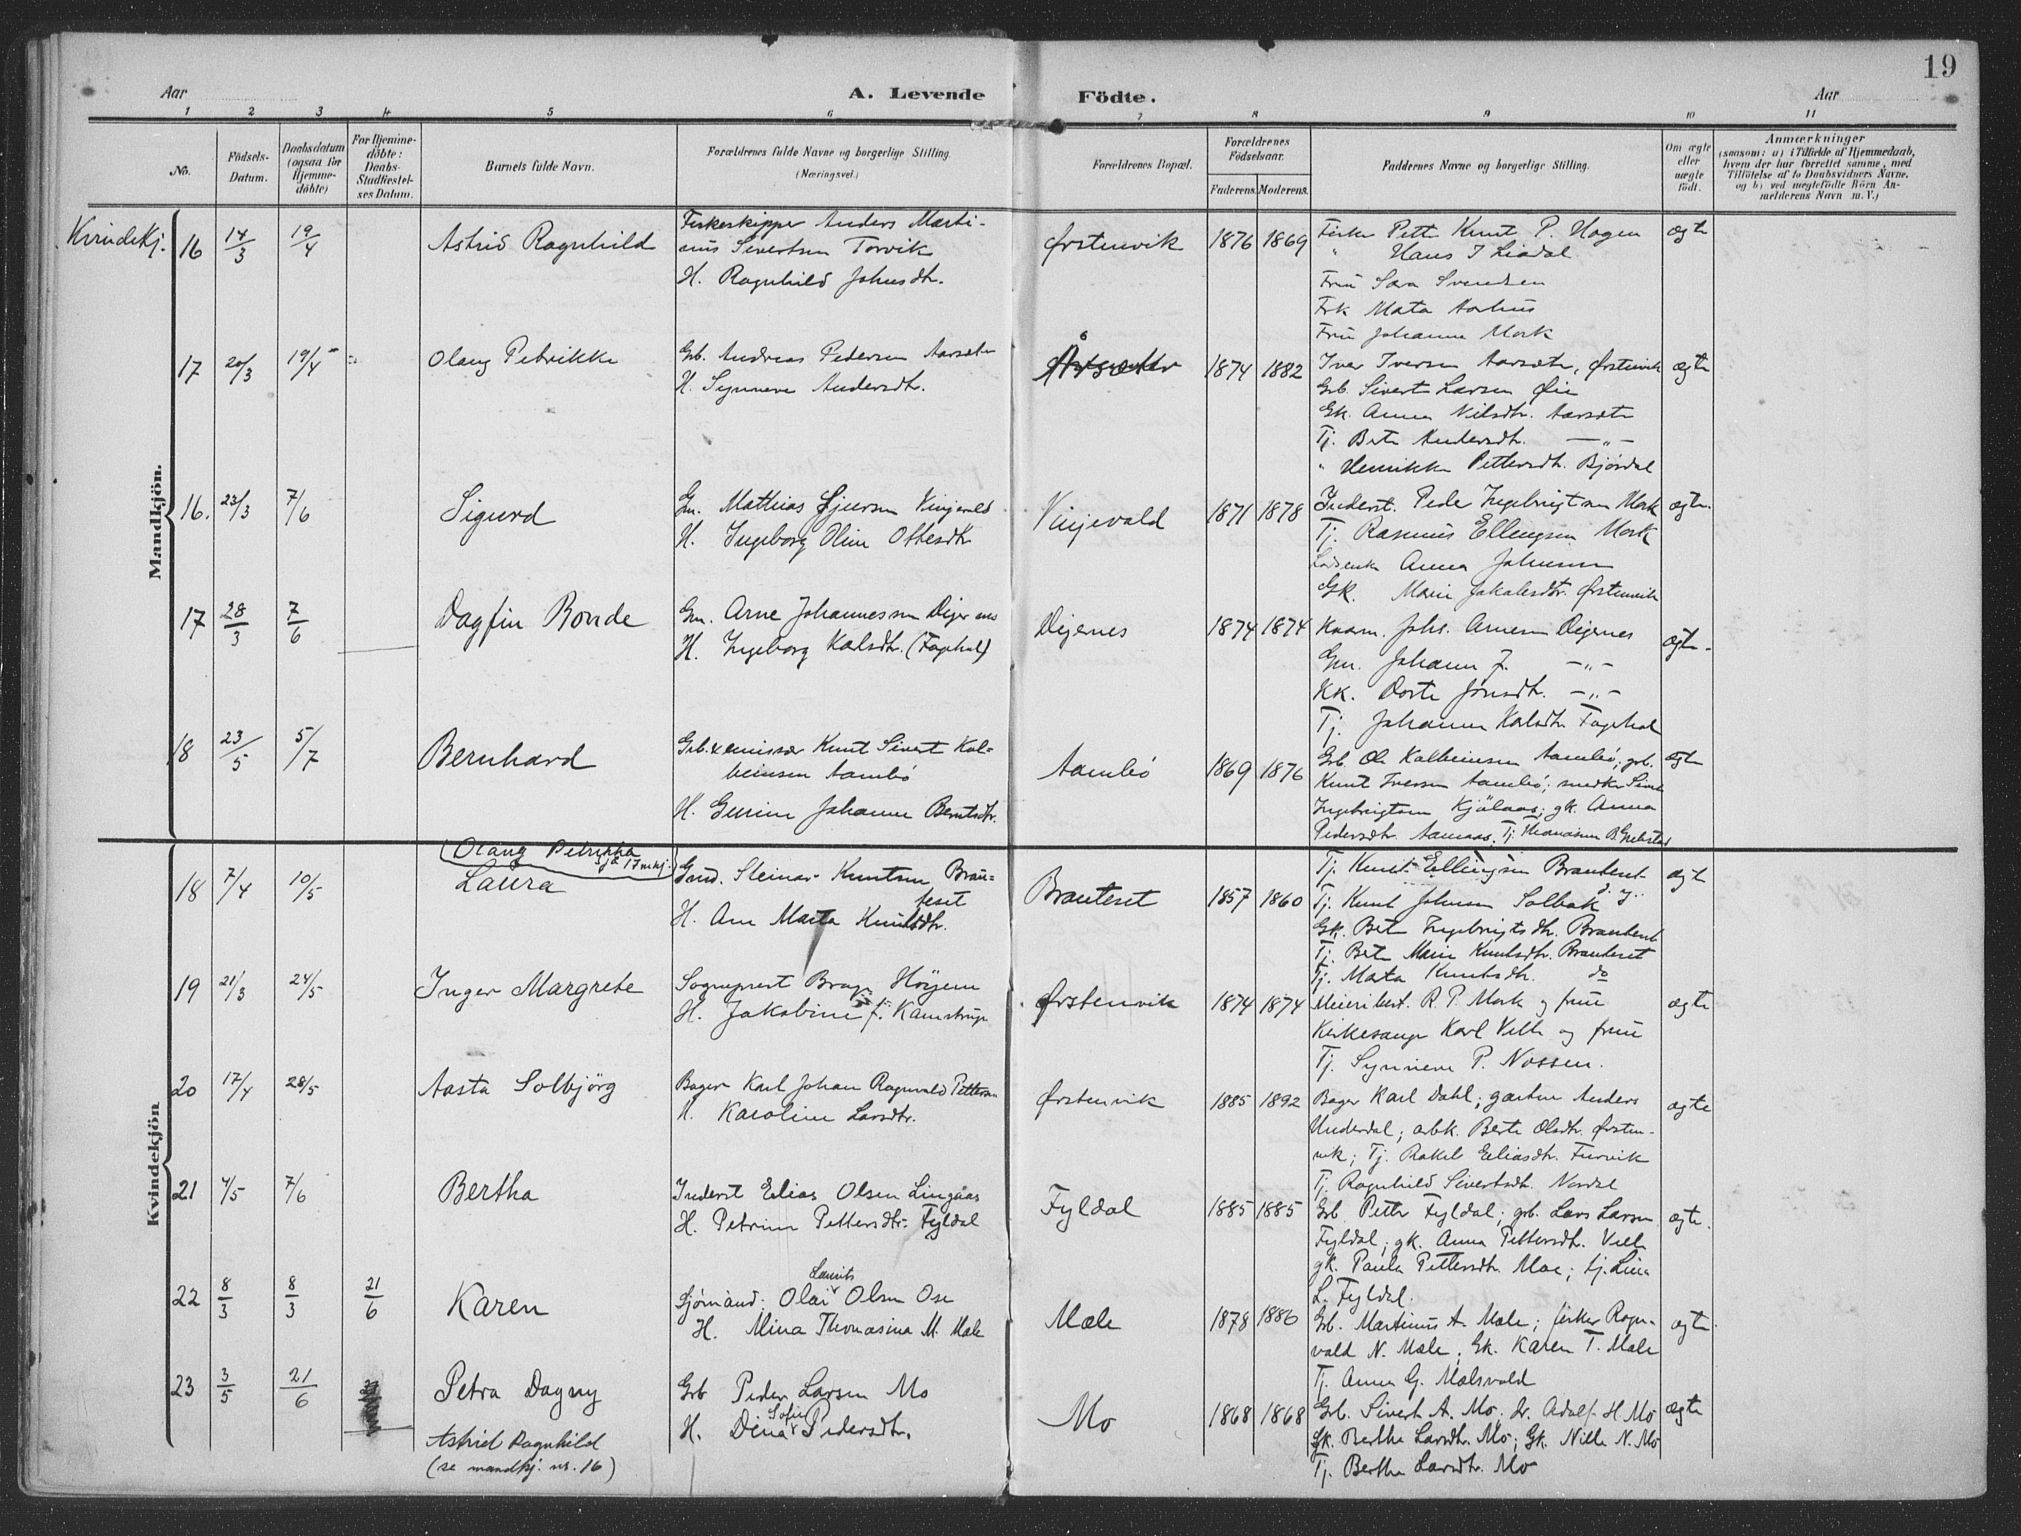 19
Aar
A. Levende
Födte.
Aar
1 2 3 4 5 6 7 8 9 10 11
No.
Födsels-
Datum.
Daabsdatum
(ogsaa for
Hjemme-
döbte)
For Hjemme-
döbte:
Daabs-
Stadfæstel-
ses Datum.
Barnets fulde Navn.
Forældrenes fulde Navne og borgerlige Stilling.
(Næringsvei.)
Forældrenes Bopæl.
Forældrenes
Födselsaar.
Faderens. Moderens.
Faddernes Navne og borgerlige Stilling.
Om ægte
eller
uægte
födt.
Anmærkninger
(saasom: a) i Tilfælde af Hjemmedaab,
hvem der har forrettet samme, med
Tilföielse af to Daabsvidners Navne,
og b) ved uægtefödte Börn An-
melderens Navn m. V.)
Mandkjön.
Kvindekj. 16 14/3 19/4 Astrid Ragnhild
Fiskeskipper Anders Marti-
nus Sivertsen Torvik
H. Ragnhild Johnsdtr.
Ørstenvik 1876 1869
Fisker Petter Knut P. Hagen
" Hans J Liadal
Fru Sara Svendsen
Frk Mata Aarhus
Fru Johanne Mork
ægte
17 20/3 19/4 Olaug Petrikke
Grb. Andreas Pedersen Aarsæter
H. Synneve Andersdtr.
1874 1882
Iver Iversen Aarsæter, Ørstenvik
Grb. Sivert Larsen Øie
Gk. Anna Nilsdtr. Aarsæter
Tj. Berte Andersdtr. —"—
" Henrikke Pettersdtr. Bjørdal
ægte
16. 23/3 7/6 Sigurd
Gm. Mathias Gjursen Vinjevold
H. Ingeborg Oline Ottesdtr
Vinjevold 1871 1878
Inderst. Peder Ingebrigtsen Mork
Tj. Rasmus Ellingsen Mork
Anna Johnsen
Gk. Marie Jakobsdtr. Ørstenvik
ægte.
17 28/3 7/6 Dagfin Bonde
Gm. Arne Johannessen Digernes
H. Ingeborg Karlsdtr. (Fagehol)
Digernes 1874 1874
Kaarm. Johs. Arnesen Digernes
Gm. Johann J. —"—
Kk. Dorte Jónsdtr. —"—
Tj. Johanne Karlsdtr Fagehol
ægte.
18 23/5 5/7 Bernhard
Grb. & emissær Knut Sivert Kol-
beinsen Aambø
H. Gurine Johanne Berntsdtr.
Aambø 1869 1876
Grb. Ole Kolbeinsen Aambø; grb.
Knut Iversen Aambø; snedker Sivert
Ingebrigtsen Kjölaas; gk. Anna
Pedersdtr. Aamaas, Tj. Thomasine B. Grebstad
ægte
Kvindekjön
Olaug Petrikka
sjå 17 mkj.
18 7/4 10/5 Laura
Gmd. Steinar Knutsen Brau-
teset
H. Ane Marta Knutsdtr.
Brauteset 1857 1860
Tj. Knut Ellingsen Brauteset
Tj. Knut Johnsen Solbak d. y.
Gk. Berte Ingebrigtsdtr. Brauteset
Tj. Berte Marie Knutsdtr. Brauteset
Tj. Marta Knutsdtr. do
ægte
19 21/3 24/5 Inger Margrete
Sogneprest Brage Höyem
H. Jakobine f. Kamstrup
Ørstenvik 1874 1874
Meieribest. R. P. Mork og frue
Kirkesanger Karl Velle og frue
Tj. Synneve P. Nossen.
ægte
20 17/4 28/5 Aasta Solbjörg
Bager Karl Johan Ragnvald Pettersen
H. Karoline Larsdtr.
Ørstenvik 1885 1892
Bager Karl Dahl; gartner Anders
Underdal; abk. Berte Olsdtr. Ørsten-
vik; Tj. Rakel Eliasdtr. Furvik
Tj. Ragnhild Sivertsdtr. Nordal
ægte
21 4/5 7/6 Bertha
Inderst Elias Olsen Lingaas
H. Petrine Pettersdtr. Fyldal
Fyldal 1885 1885
Grb. Petter Fyldal; grb. Lars Larsen
Fyldal; gk. Anna Pettersdtr. Velle
gk. Paula Pettersdtr. Moe; tj. Lina
L. Fyldal.
ægte.
22 8/3 8/3 21/6 Karen
Laurits
Sjømand. Olai Olsen Ose
H. Mina Thomasina M. Mæle
Mæle 1878 1886
Grb. Martinus A. Mæle; fisker Ragn-
vald N. Mæle; Gk. Karen T. Mæle
Tj. Anna G. Mælsvold
ægte.
23 3/5 21/6 Petra Dagny
Grb Peder Larsen Mo
H. Dina Sofie Pedersdtr.
Mo 1868 1868
Grb. Sivert A. Mo; dr. Adolf H. Mo
Gk. Berthe Larsdtr. Mo; Gk. Nille N. Mo
Tj. Bertha Larsdtr. Mo
ægte
Astrid Ragnhild
(se mandkj. nr. 16)